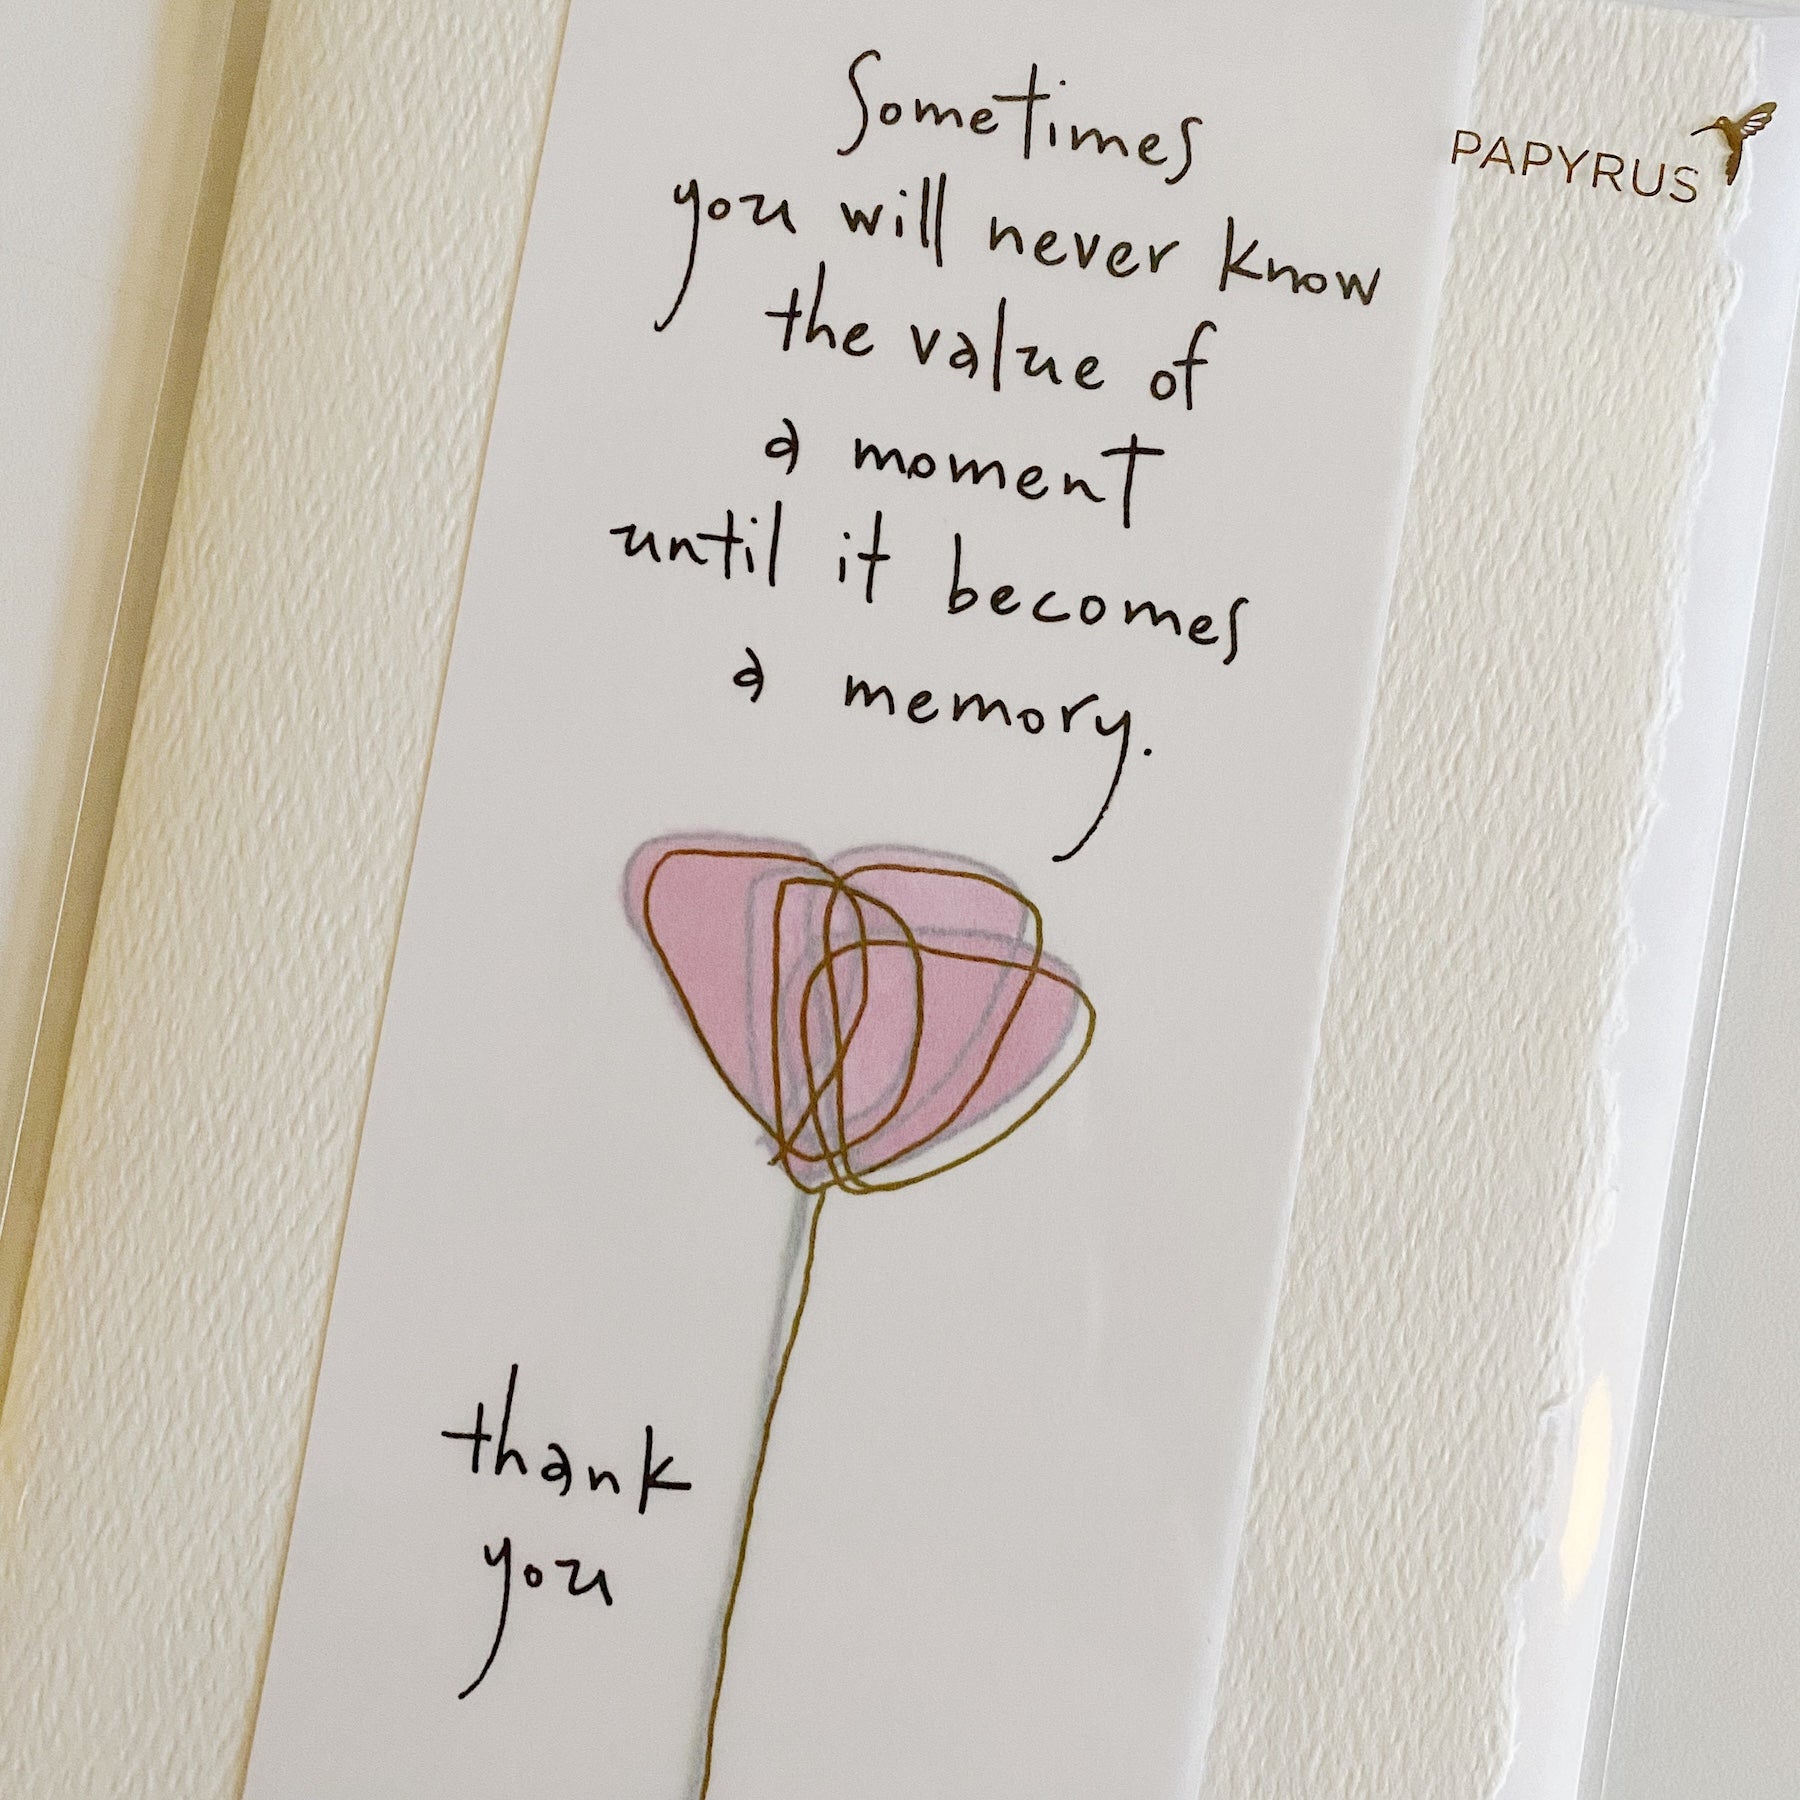 Sometimes
you will never know
the value of
a moment
until it becomes
a memory.
PAPYRUS
thank
you